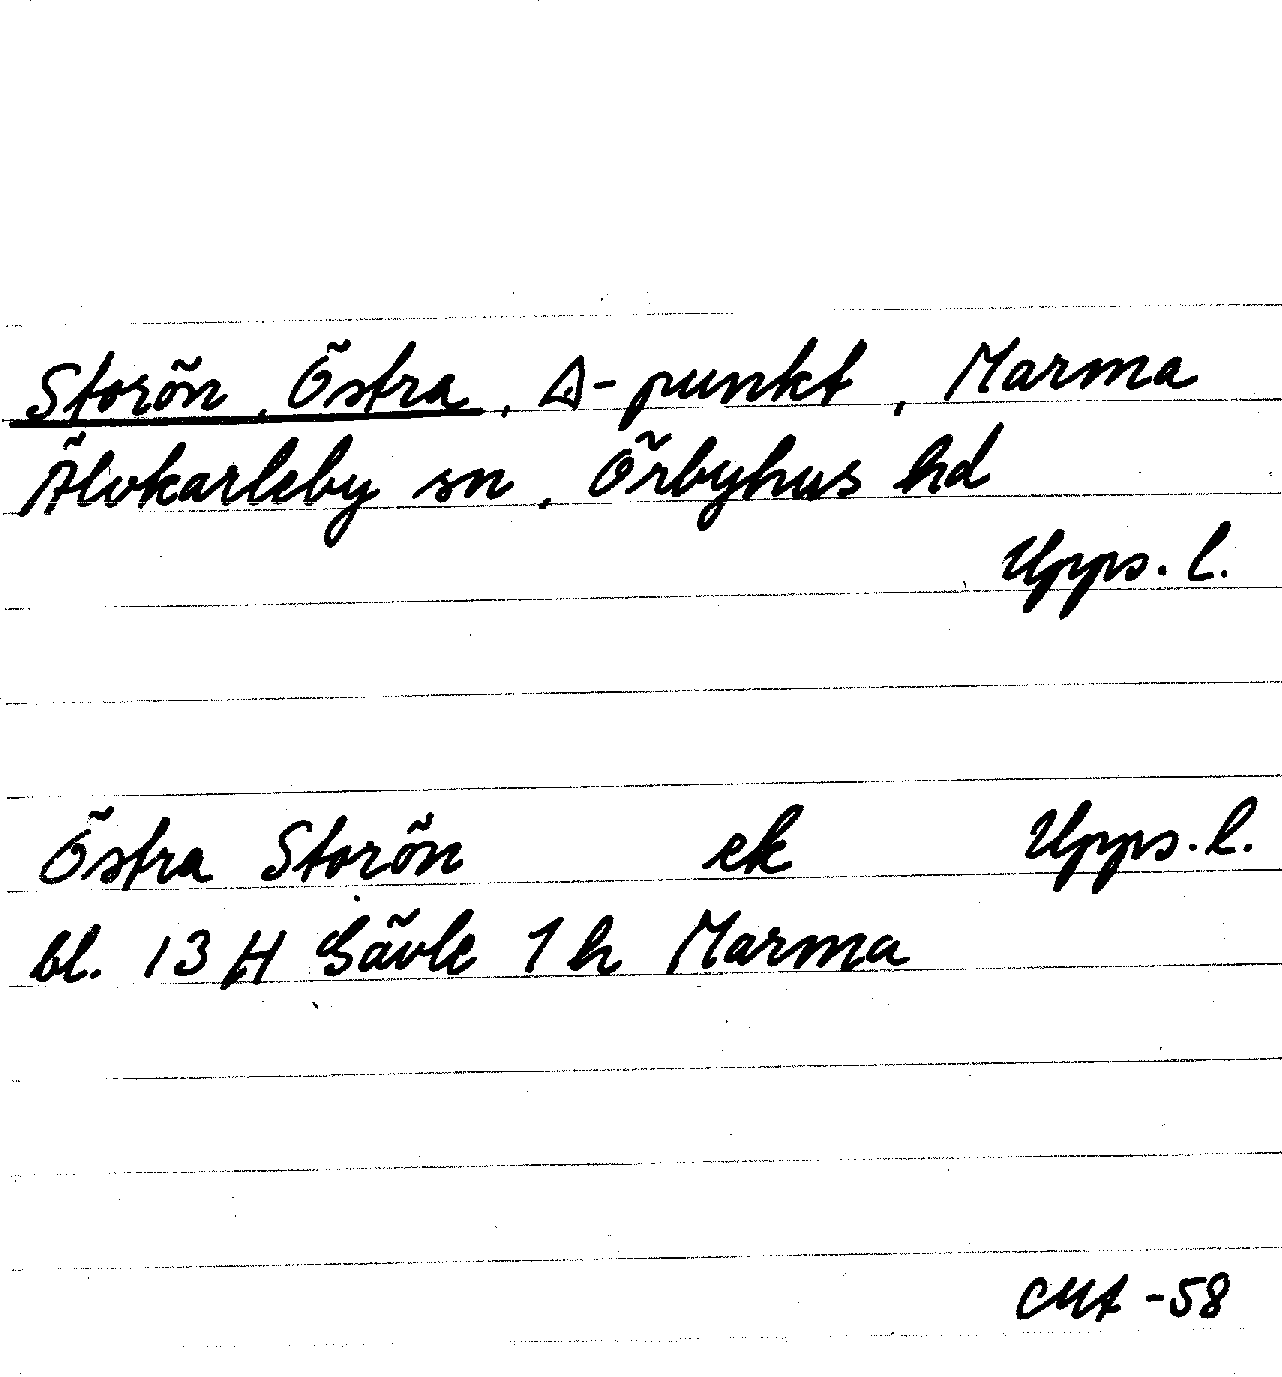 Storön, Östra, △-punkt, Marma
Älvkarleby sn, Örbyhus hd
Upps. l.
Östra Storön ek Upps. l.
bl. 13 H Gävle 1 h Marma
CMA -58